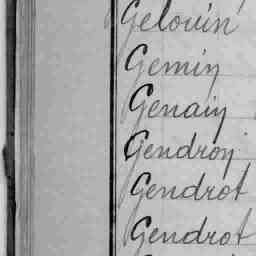 Gelouin
Gemin
Genain
Gendron
Gendrot
Gendrot